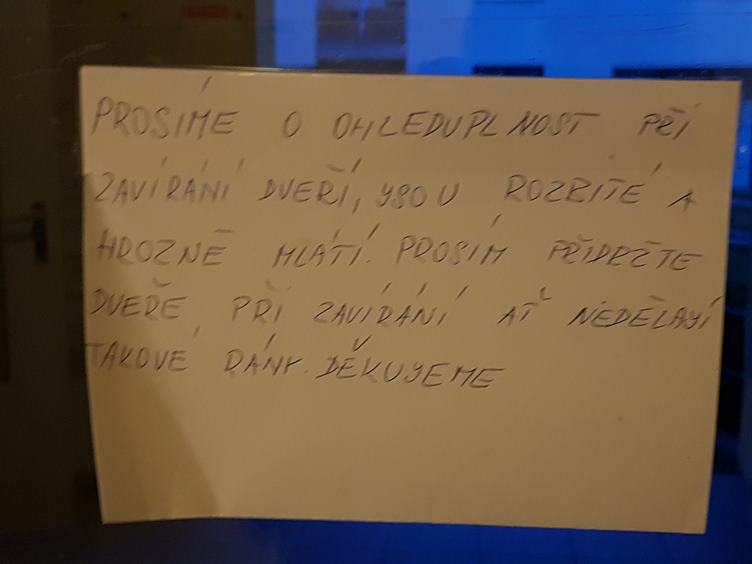 PROSÍME O OHLEDUPLNOST PŘI
ZAVÍRÁNÍ DVEŘÍ, YSOU ROZBITÉ A
HROZNĚ MLÁTÍ. PROSÍM PŘIDRŽTE
DVEŘE PŘI ZAVÍRÁNÍ AŤ NEDĚLAYÍ
TAKOVÉ RÁNY. DĚKUYEME